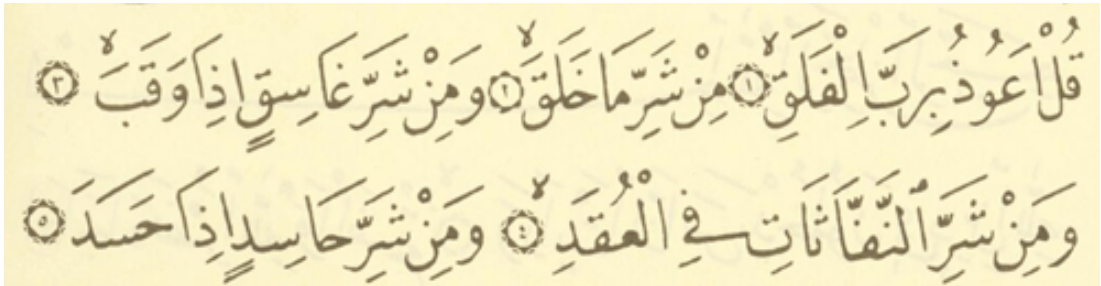 قُلْ اَعُوذُ بِرَبِّ الْفَلَقِۙ ﴿١﴾ مِنْ شَرِّ مَا خَلَقَۙ ﴿٢﴾ وَمِنْ شَرِّ غَاسِقٍ اِذَا وَقَبَۙ ﴿٣﴾
وَمِنْ شَرِّ ٱلنَّفَّاثَاتِ فِي الْعُقَدِۙ ﴿٤﴾ وَمِنْ شَرِّ حَاسِدٍ اِذَا حَسَدَ ﴿٥﴾